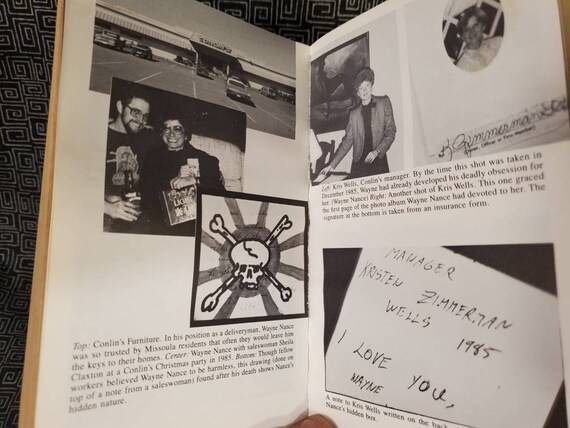 CONLIN'S
Top: Conlin's Furniture. In his position as a deliveryman, Wayne Nance
was so trusted by Missoula residents that often they would leave him
the keys to their homes. Center: Wayne Nance with saleswoman Sheila
Claxton at a Conlin's Christmas party in 1985. Bottom: Though fellow
workers believed Wayne Nance to be harmless, this drawing (done on
top of a note from a saleswoman) found after his death shows Nance's
hidden nature.
K Zimmerman
Officer or Firm Member)
Left: Kris Wells, Conlin's manager. By the time this shot was taken in
December 1985, Wayne had already developed his deadly obsession for
her. (Wayne Nance) Right: Another shot of Kris Wells. This one graced
the first page of the photo album Wayne Nance had devoted to her. The
signature at the bottom is taken from an insurance form.
MANAGER
KRISTEN ZIMMERMAN
WELLS 1985
I LOVE YOU,
WAYNE
A note to Kris Wells written on the back
Nance's hidden box.